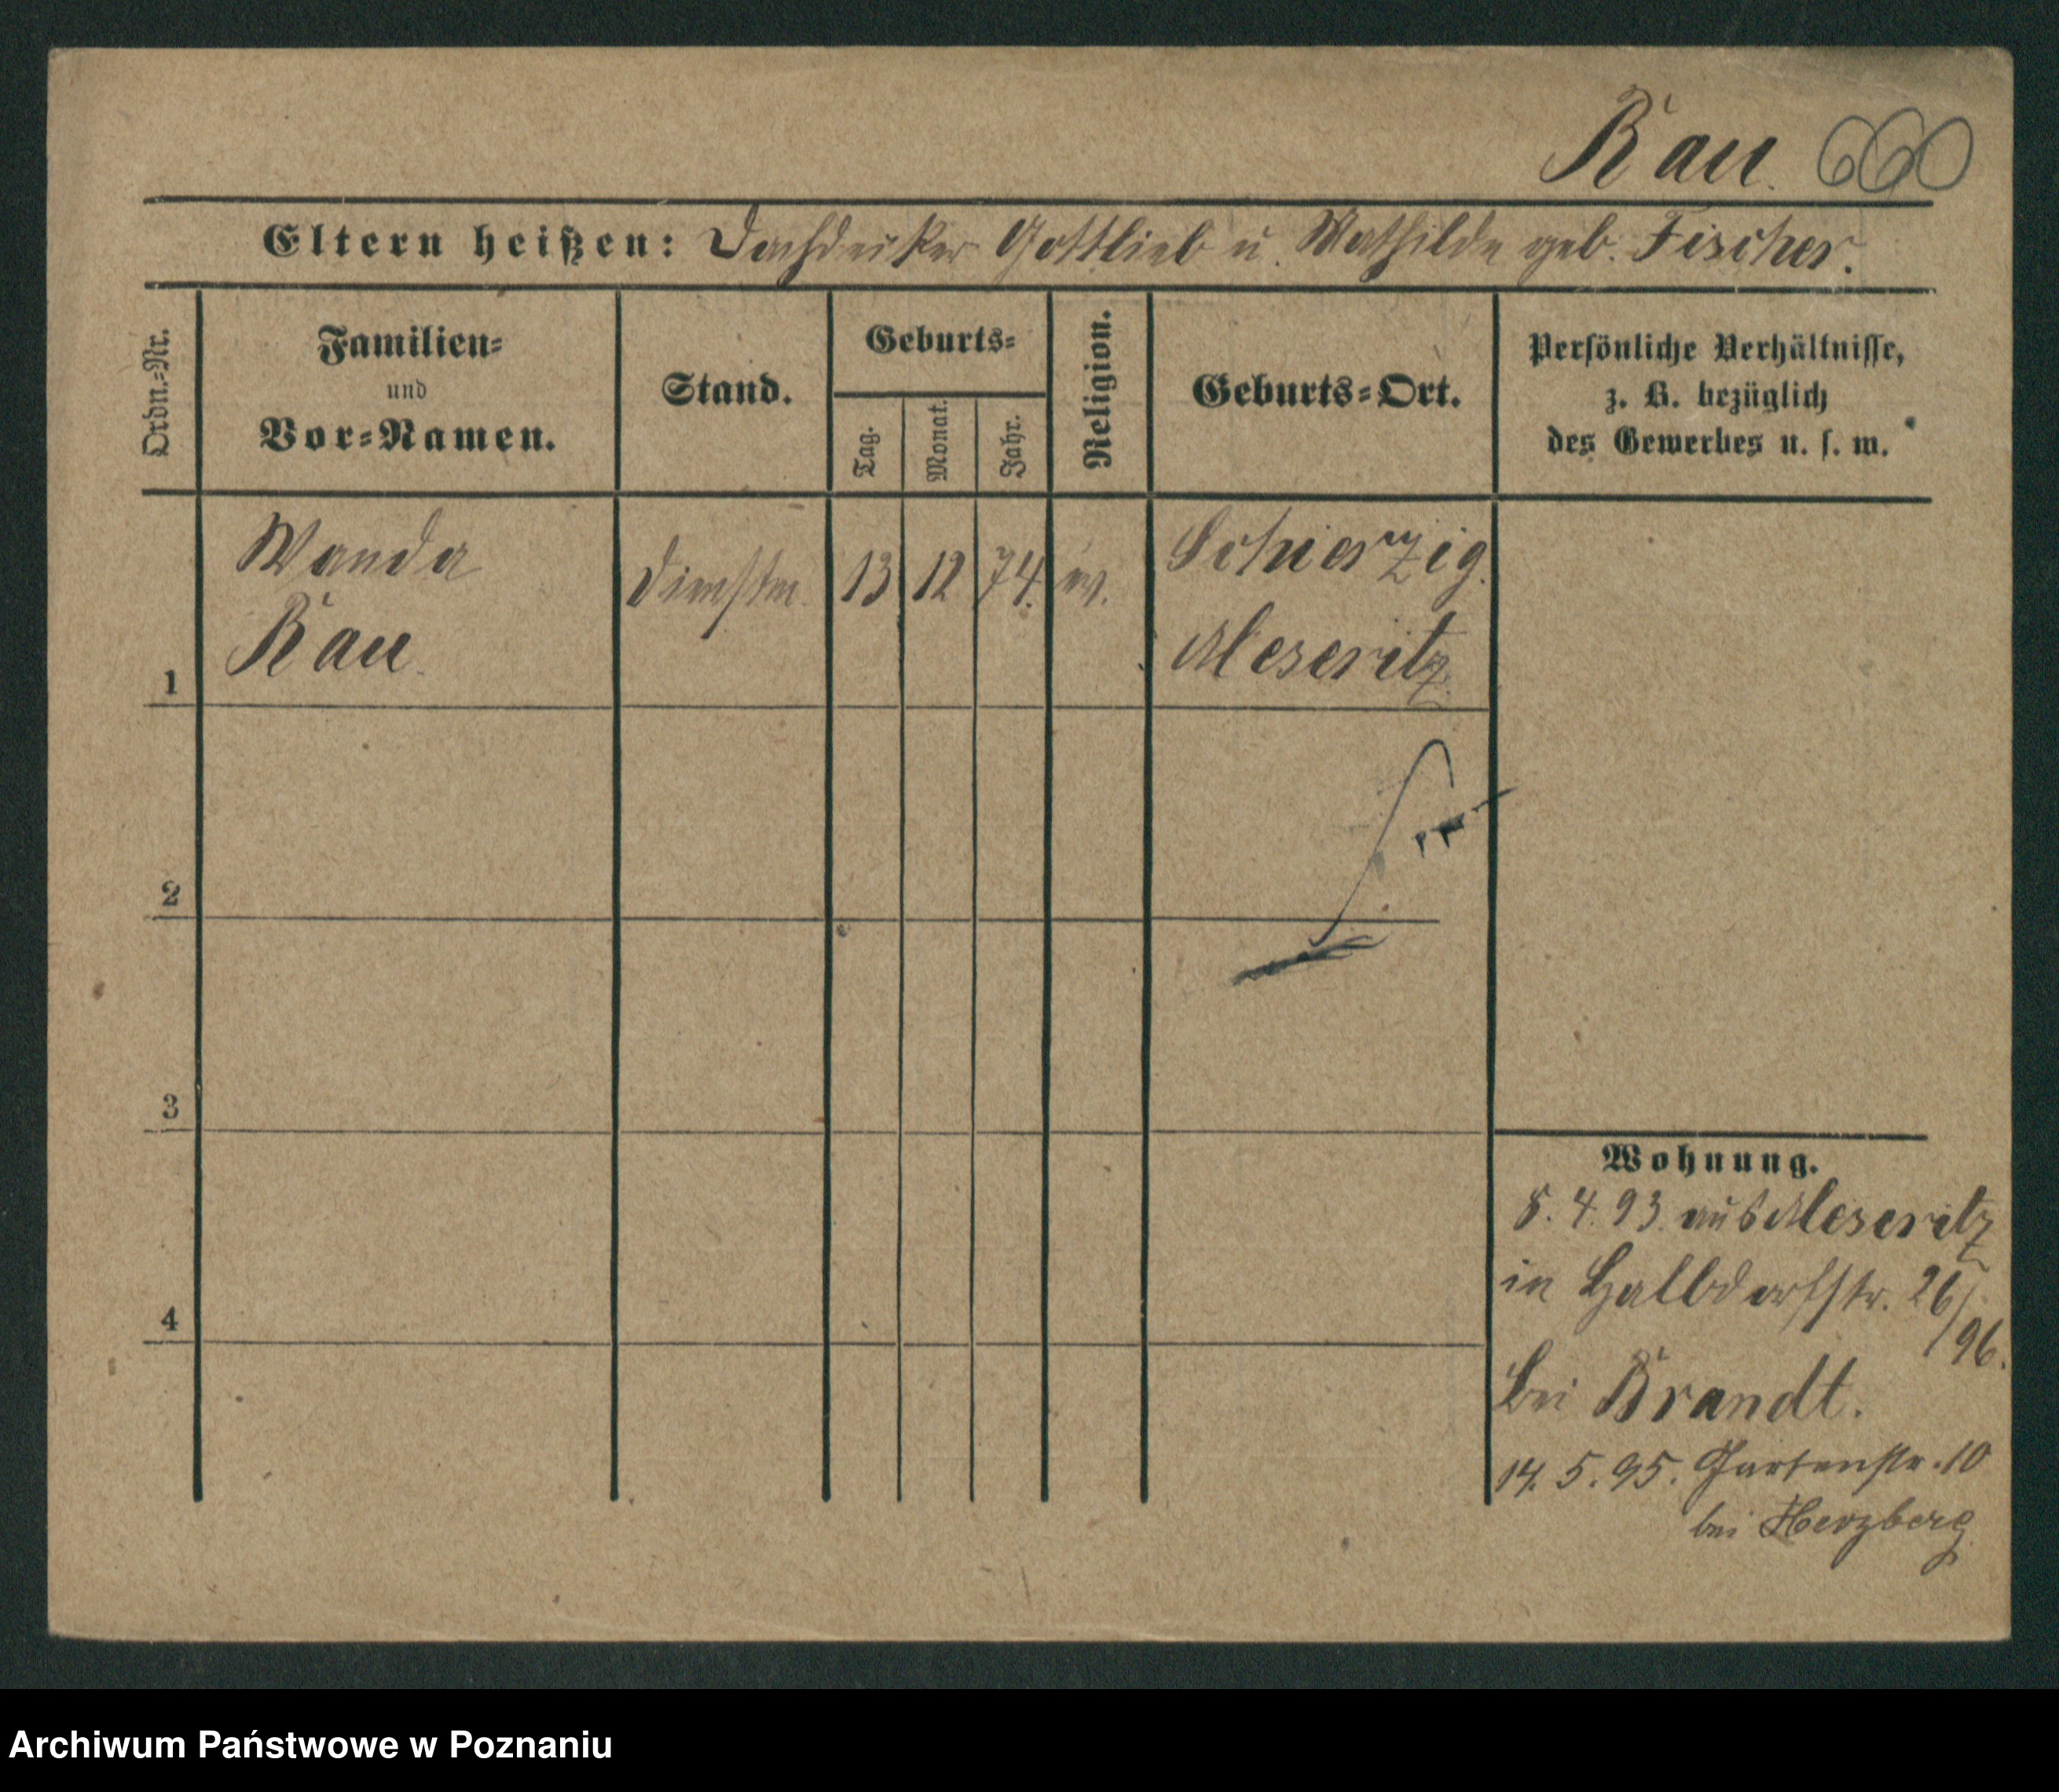 Rau. 660
Eltern heißen: Dachdecker Gottlieb u. Mathilde geb. Fischer.
Ordn.=Nr.
Familien=
und
Vor=Namen.
Stand.
Geburts=
Tag.
Monat.
Jahr.
Religion.
Geburts=Ort.
Persönliche Verhältnisse,
z. B. bezüglich
des Gewerbes u. s. w.
1
Wanda
Rau.
Dienstm.
13
12
74.
ev.
Schierzig.
Meseritz
2
3
4
Wohnung.
8. 4. 93. aus Meseritz
in Halbdorfstr. 26/
96.
bei Brandt.
14. 5. 95. Gartenstr. 10
bei Herzberg
Archiwum Państwowe w Poznaniu